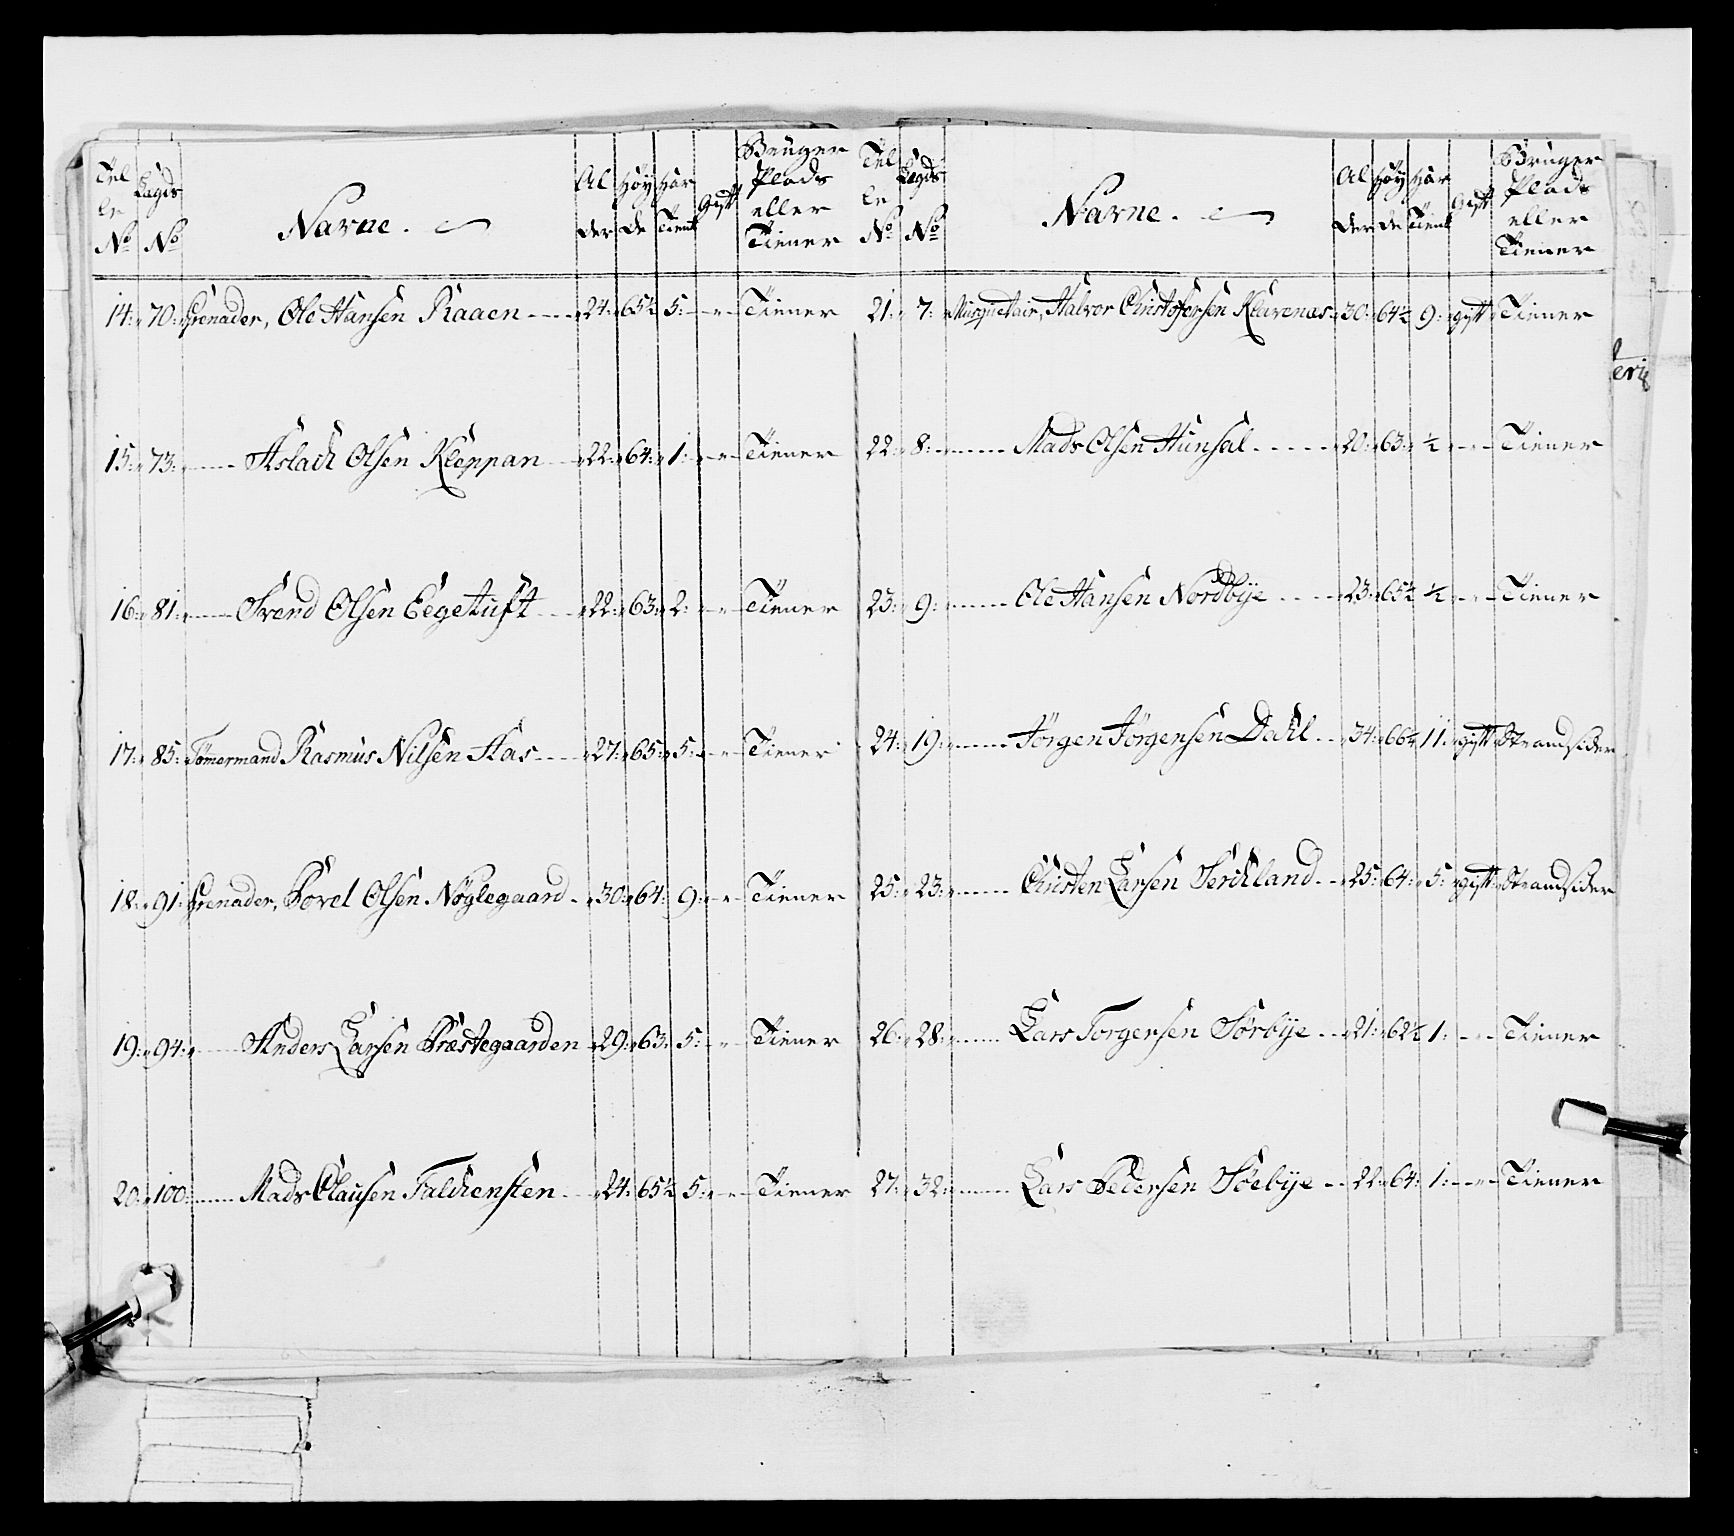 Tel Lagds Al Høy Har Gift Bruger
le Navne. der de Tient Plads
No No eller
Tiener
14. 70. Grenader, Ole Hansen Raaen 24. 65½ 5. Tiener
15. 73. Aslach Olsen Kleppan 22. 64. 1. Tiener
16. 81. Svend Olsen Eegetuft 22. 63. 2. Tiener
17. 85. Tømermand Rasmus Nilsen Aas 27. 65. 5. Tiener
18. 91. Grenader, Povel Olsen Nøglegaard 30. 64. 9. Tiener
19. 94. Anders Larsen Præstegaarden 29. 63. 5. Tiener
20. 100. Mads Clausen Falchensten 24. 65½ 5. Tiener
Tel Lægds Al Høy Har Gift Bruger
le Navne. der de Tient Plads
No No eller
Tiener
21. 7. Musquetair, Halvor Christofersen Klavenæs 30. 64½ 9. gift Tiener
22. 8. Mads Olsen Hunsal 20. 63. ½ Tiener
23. 9. Ole Hansen Nordbye 23. 65½ ½ Tiener
24. 19. Jørgen Jørgensen Dahl 34. 66½ 11. gift Strandsider
25. 23. Christen Larsen Serchland 25. 64. 5. gift Strandsider
26. 28. Lars Torgersen Sørbye 21. 62½ 1. Tiener
27. 32. Lars Pedersen Søebye 22. 64. 1. Tiener